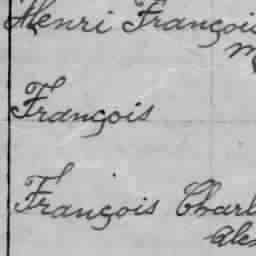 Henri François
François
François Charl
Alex